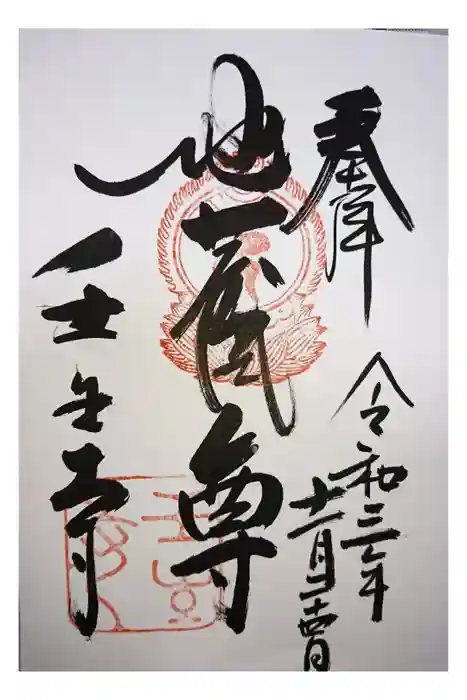 奉拝
令和三年
十二月二十四日
地蔵尊
壬生寺